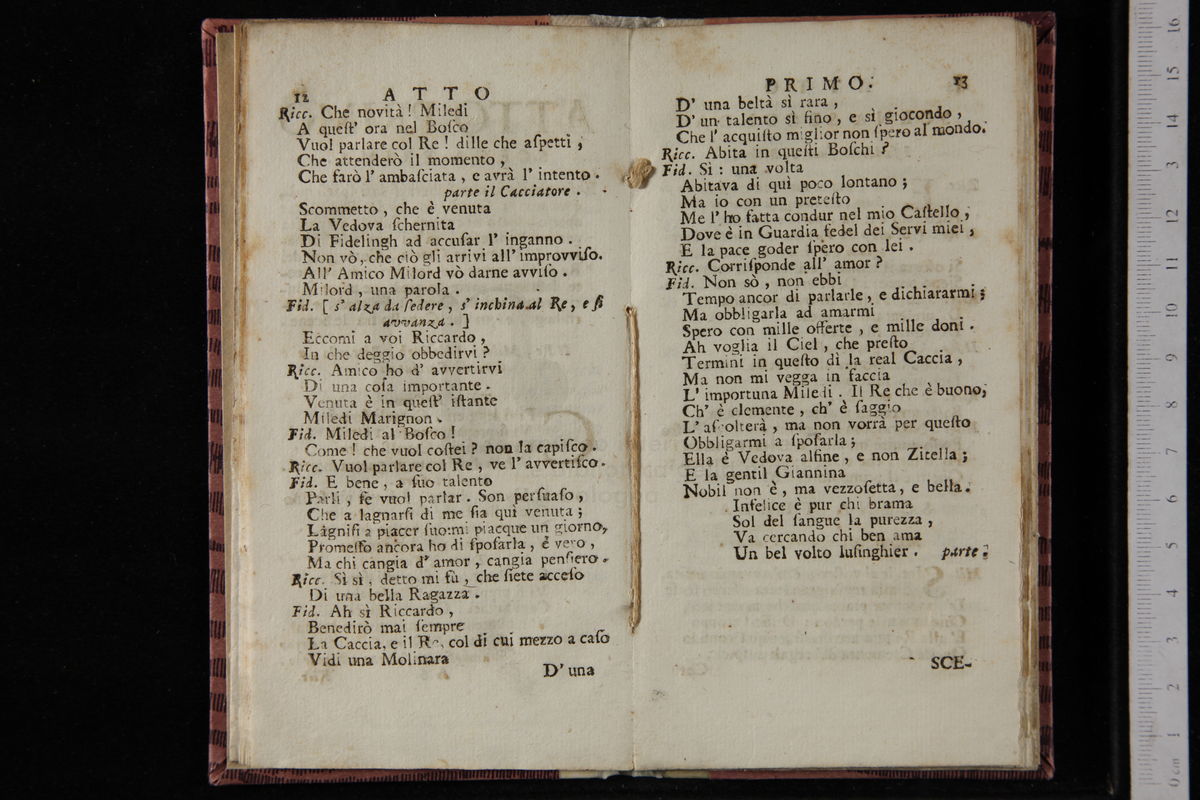 12 ATTO
Ricc. Che novità ! Miledi
A queſt' ora nel Boſco
Vuol parlare col Re ! dille che aſpetti ;
Che attenderò il momento ,
Che farò l' ambaſciata , e avrà l' intento .
parte il Cacciatore .
Scommetto , che è venuta
La Vedova ſchernita
Di Fidelingh ad accuſar l' inganno .
Non vò, che ciò gli arrivi all' improvviſo.
All' Amico Milord vò darne avviſo .
Milord , una parola .
Fid. [ s' alza da ſedere , s' inchina al Re, e ſi
avvanza . ]
Eccomi a voi Riccardo ,
In che deggio obbedirvi ?
Ricc. Amico ho d' avvertirvi
Di una coſa importante .
Venuta è in queſt' iſtante
Miledi Marignon .
Fid. Miledi al Boſco !
Come ! che vuol coſtei ? non la capiſco .
Ricc. Vuol parlare col Re , ve l' avvertiſco.
Fid. E bene , a ſuo talento
Parli , ſe vuol parlar . Son perſuaſo ,
Che a lagnarſi di me ſia quì venuta ;
Lagniſi a piacer ſuo: mi piacque un giorno,
Promeſſo ancora ho di ſpoſarla , è vero ,
Ma chi cangia d' amor , cangia penſiero .
Ricc. Sì sì , detto mi fù , che ſiete acceſo
Di una bella Ragazza .
Fid. Ah sì Riccardo ,
Benedirò mai ſempre
La Caccia, e il Re, col di cui mezzo a caſo
Vidi una Molinara
D' una
PRIMO. 13
D' una beltà sì rara ,
D' un talento sì fino , e sì giocondo ,
Che l' acquiſto miglior non ſpero al mondo.
Ricc. Abita in queſti Boſchi ?
Fid. Sì : una volta
Abitava di quì poco lontano ;
Ma io con un preteſto
Me l' ho fatta condur nel mio Caſtello ,
Dove è in Guardia fedel dei Servi miei ,
E la pace goder ſpero con lei .
Ricc. Corriſponde all' amor ?
Fid. Non sò , non ebbi
Tempo ancor di parlarle , e dichiararmi ;
Ma obbligarla ad amarmi
Spero con mille offerte , e mille doni .
Ah voglia il Ciel , che preſto
Termini in queſto dì la real Caccia ,
Ma non mi vegga in faccia
L' importuna Miledi . Il Re che è buono,
Ch' è clemente , ch' è ſaggio
L' aſcolterà , ma non vorrà per queſto
Obbligarmi a ſpoſarla ;
Ella è Vedova alfine , e non Zitella ;
E la gentil Giannina
Nobil non è , ma vezzoſetta , e bella .
Infelice è pur chi brama
Sol del ſangue la purezza ,
Va cercando chi ben ama
Un bel volto luſinghier . parte .
SCE-
0 cm 1 2 3 4 5 6 7 8 9 10 11 12 13 14 15 16